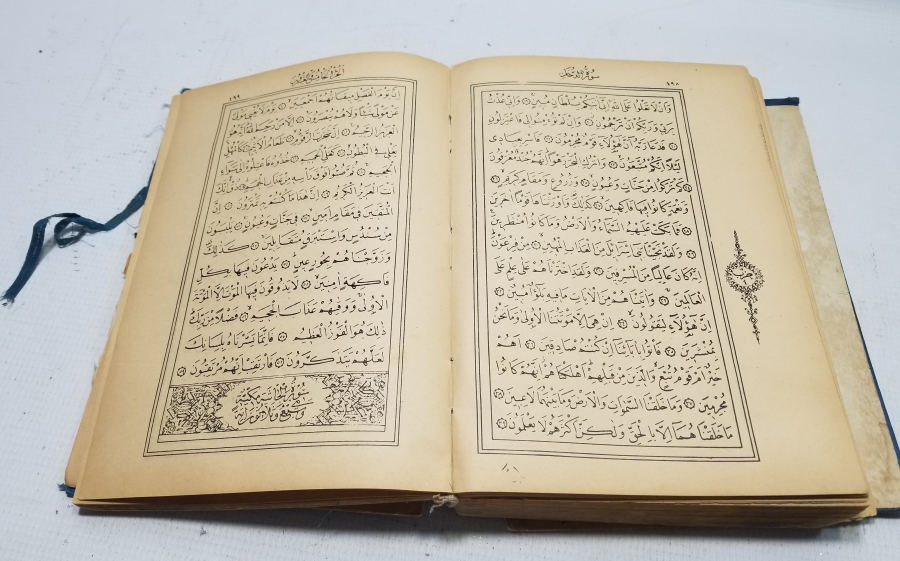 سُورَةُ الدُّخَانِ ٤٩٨
وَاَنْ لَا تَعْلُوا عَلَى اللّٰهِ اِنّٖى اٰتٖيكُمْ بِسُلْطَانٍ مُبٖينٍ ۝ وَاِنّٖى عُذْتُ
بِرَبّٖى وَرَبِّكُمْ اَنْ تَرْجُمُونِ ۝ وَاِنْ لَمْ تُؤْمِنُوا لٖى فَاعْتَزِلُونِ
۝ فَدَعَا رَبَّهُ اَنَّ هٰؤُلَاءِ قَوْمٌ مُجْرِمُونَ ۝ فَاَسْرِ بِعِبَادٖى
لَيْلًا اِنَّكُمْ مُتَّبَعُونَ ۝ وَاتْرُكِ الْبَحْرَ رَهْوًا اِنَّهُمْ جُنْدٌ مُغْرَقُونَ
۝ كَمْ تَرَكُوا مِنْ جَنَّاتٍ وَعُيُونٍ ۝ وَزُرُوعٍ وَمَقَامٍ كَرٖيمٍ ۝
وَنَعْمَةٍ كَانُوا فٖيهَا فَاكِهٖينَ ۝ كَذٰلِكَ وَاَوْرَثْنَاهَا قَوْمًا اٰخَرٖينَ
۝ فَمَا بَكَتْ عَلَيْهِمُ السَّمَاءُ وَالْاَرْضُ وَمَا كَانُوا مُنْظَرٖينَ
۝ وَلَقَدْ نَجَّيْنَا بَنٖى اِسْرَائٖلَ مِنَ الْعَذَابِ الْمُهٖينِ ۝ مِنْ فِرْعَوْنَ
اِنَّهُ كَانَ عَالِيًا مِنَ الْمُسْرِفٖينَ ۝ وَلَقَدِ اخْتَرْنَاهُمْ عَلٰى عِلْمٍ عَلَى
الْعَالَمٖينَ ۝ وَاٰتَيْنَاهُمْ مِنَ الْاٰيَاتِ مَا فٖيهِ بَلٰؤٌا مُبٖينٌ ۝
اِنَّ هٰؤُلَاءِ لَيَقُولُونَ ۝ اِنْ هِىَ اِلَّا مَوْتَتُنَا الْاُولٰى وَمَا نَحْنُ
بِمُنْشَرٖينَ ۝ فَأْتُوا بِاٰبَائِنَا اِنْ كُنْتُمْ صَادِقٖينَ ۝ اَهُمْ
خَيْرٌ اَمْ قَوْمُ تُبَّعٍ وَالَّذٖينَ مِنْ قَبْلِهِمْ اَهْلَكْنَاهُمْ اِنَّهُمْ كَانُوا
مُجْرِمٖينَ ۝ وَمَا خَلَقْنَا السَّمٰوَاتِ وَالْاَرْضَ وَمَا بَيْنَهُمَا لَاعِبٖينَ ۝
مَا خَلَقْنَاهُمَا اِلَّا بِالْحَقِّ وَلٰكِنَّ اَكْثَرَهُمْ لَا يَعْلَمُونَ ۝
حزب
اَلْجُزْءُ الْخَامِسُ وَالْعِشْرُونَ ٤٩٩
اِنَّ يَوْمَ الْفَصْلِ مٖيقَاتُهُمْ اَجْمَعٖينَ ۝ يَوْمَ لَا يُغْنٖى مَوْلًى
عَنْ مَوْلًى شَيْئًا وَلَا هُمْ يُنْصَرُونَ ۝ اِلَّا مَنْ رَحِمَ اللّٰهُ اِنَّهُ هُوَ
الْعَزٖيزُ الرَّحٖيمُ ۝ اِنَّ شَجَرَتَ الزَّقُّومِ ۝ طَعَامُ الْاَثٖيمِ ۝ كَالْمُهْلِ
يَغْلٖى فِى الْبُطُونِ ۝ كَغَلْىِ الْحَمٖيمِ ۝ خُذُوهُ فَاعْتِلُوهُ اِلٰى سَوَاءِ
الْجَحٖيمِ ۝ ثُمَّ صُبُّوا فَوْقَ رَأْسِهٖ مِنْ عَذَابِ الْحَمٖيمِ ۝ ذُقْ اِنَّكَ
اَنْتَ الْعَزٖيزُ الْكَرٖيمُ ۝ اِنَّ هٰذَا مَا كُنْتُمْ بِهٖ تَمْتَرُونَ ۝ اِنَّ
الْمُتَّقٖينَ فٖى مَقَامٍ اَمٖينٍ ۝ فٖى جَنَّاتٍ وَعُيُونٍ ۝ يَلْبَسُونَ
مِنْ سُنْدُسٍ وَاِسْتَبْرَقٍ مُتَقَابِلٖينَ ۝ كَذٰلِكَ
وَزَوَّجْنَاهُمْ بِحُورٍ عٖينٍ ۝ يَدْعُونَ فٖيهَا بِكُلِّ
فَاكِهَةٍ اٰمِنٖينَ ۝ لَا يَذُوقُونَ فٖيهَا الْمَوْتَ اِلَّا الْمَوْتَةَ
الْاُولٰى وَوَقٰيهُمْ عَذَابَ الْجَحٖيمِ ۝ فَضْلًا مِنْ رَبِّكَ
ذٰلِكَ هُوَ الْفَوْزُ الْعَظٖيمُ ۝ فَاِنَّمَا يَسَّرْنَاهُ بِلِسَانِكَ
لَعَلَّهُمْ يَتَذَكَّرُونَ ۝ فَارْتَقِبْ اِنَّهُمْ مُرْتَقِبُونَ ۝
سُورَةُ الْجَاثِيَةِ مَكِّيَّةٌ
وَهِىَ سَبْعٌ وَثَلَاثُونَ اٰيَةً